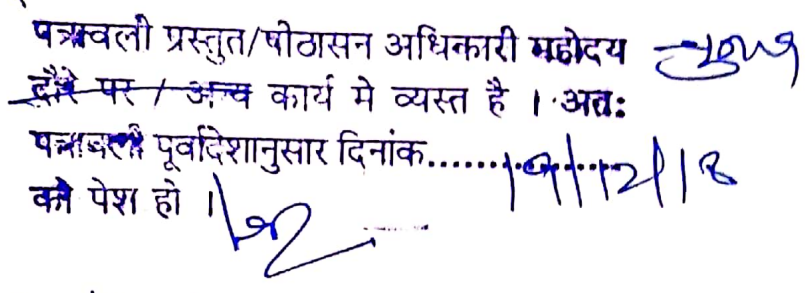 पत्रावली प्रस्तुत/पीठासन अधिकारी महोदय
दौरे पर / अन्य कार्य मे व्यस्त है । अतः
पत्रावली पूर्वादेशानुसार दिनांक.................19/12/18
को पेश हो ।